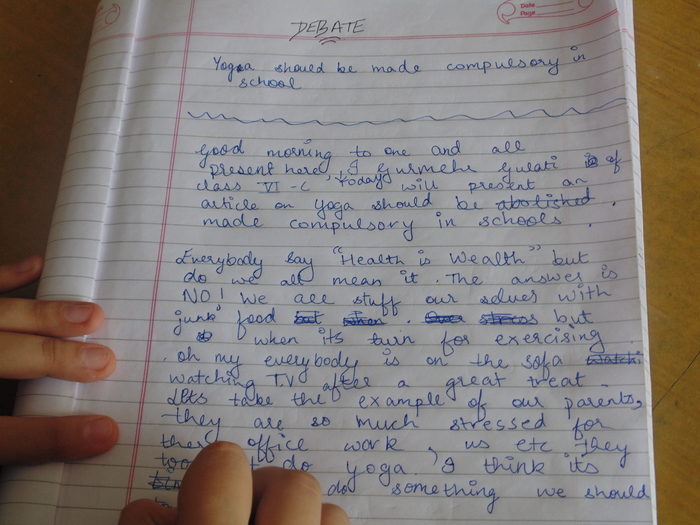 Date
Page
DEBATE
Yoga should be made compulsory in
school
Good morning to one and all
present here, I Gurmehr Gulati of
class VI-C Today will present an
article on Yoga should be abolished.
made compulsory in schools.
Everybody say "Health is Wealth" but
do we all mean it. The answer is
NO! We all stuff our selves with
junk food but when. Over stress but
when its turn for exercising.
oh my everybody is on the sofa Watchi
watching TV after a great treat.
Lets take the example of our parents,
they are so much stressed for
their office work, us etc they
do yoga. I think its
do something we should